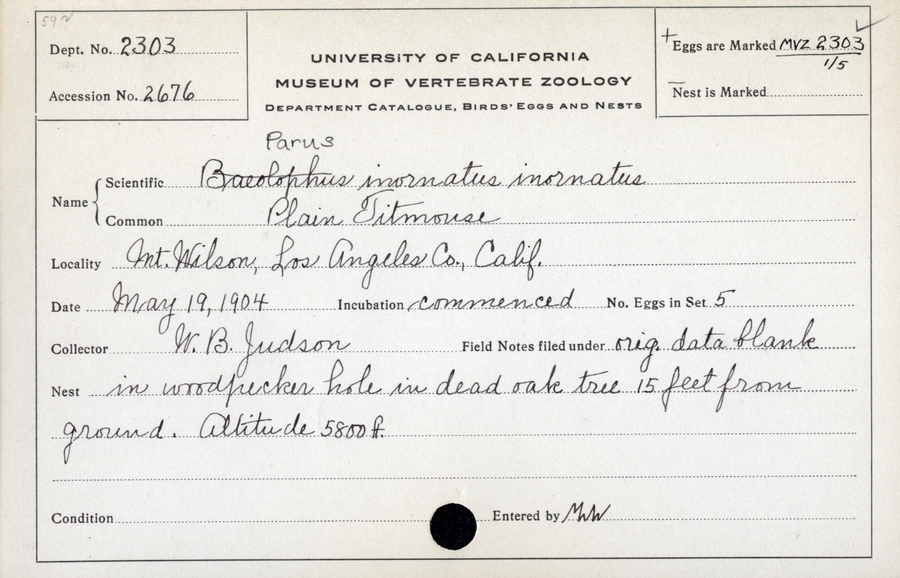 59
Dept. No. 2303
Accession No. 2676
UNIVERSITY OF CALIFORNIA
MUSEUM OF VERTEBRATE ZOOLOGY
DEPARTMENT CATALOGUE, BIRDS' EGGS AND NESTS
+ Eggs are Marked MVZ 2303
1/5
Nest is Marked
Parus
Name Scientific Baeolophus inornatus inornatus
Common Plain Titmouse
Locality Mt. Wilson, Los Angeles Co., Calif.
Date May 19, 1904 Incubation commenced No. Eggs in Set 5
Collector W. B. Judson Field Notes filed under orig. data blank
Nest in woodpecker hole in dead oak tree 15 feet from
ground. Altitude 5800 ft.
Condition Entered by